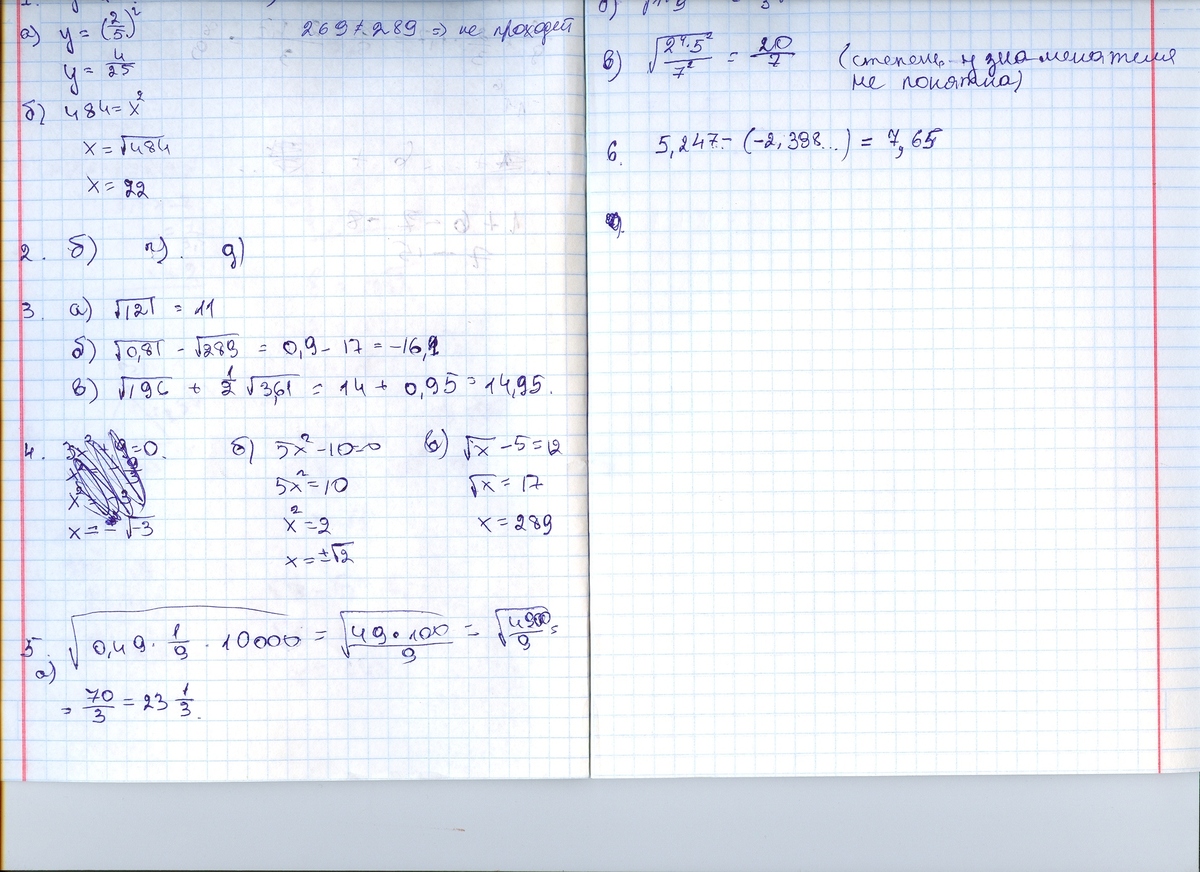 а) y = (2/5)²
269 ≠ 289 ⇒ не проходит
y = 4/25
б) 484 = x²
x = √484
x = 22
2. б) г). д)
3. а) √121 = 11
б) √0,81 - √289 = 0,9 - 17 = -16,1
в) √196 + 1/2 √3,61 = 14 + 0,95 = 14,95.
4.
x = - √-3
б) 5x² - 10 = 0
5x² = 10
x² = 2
x = ±√2
в) √x - 5 = 12
√x = 17
x = 289
5. а) √(0,49 · 1/9 · 10000) = √(49·100/9) = √(4900/9) =
= 70/3 = 23 1/3.
в) √(2⁴·5²/7²) = 20/7 (степень у знаменателя
не понятна)
6. 5,247.. - (-2,398...) = 7,65